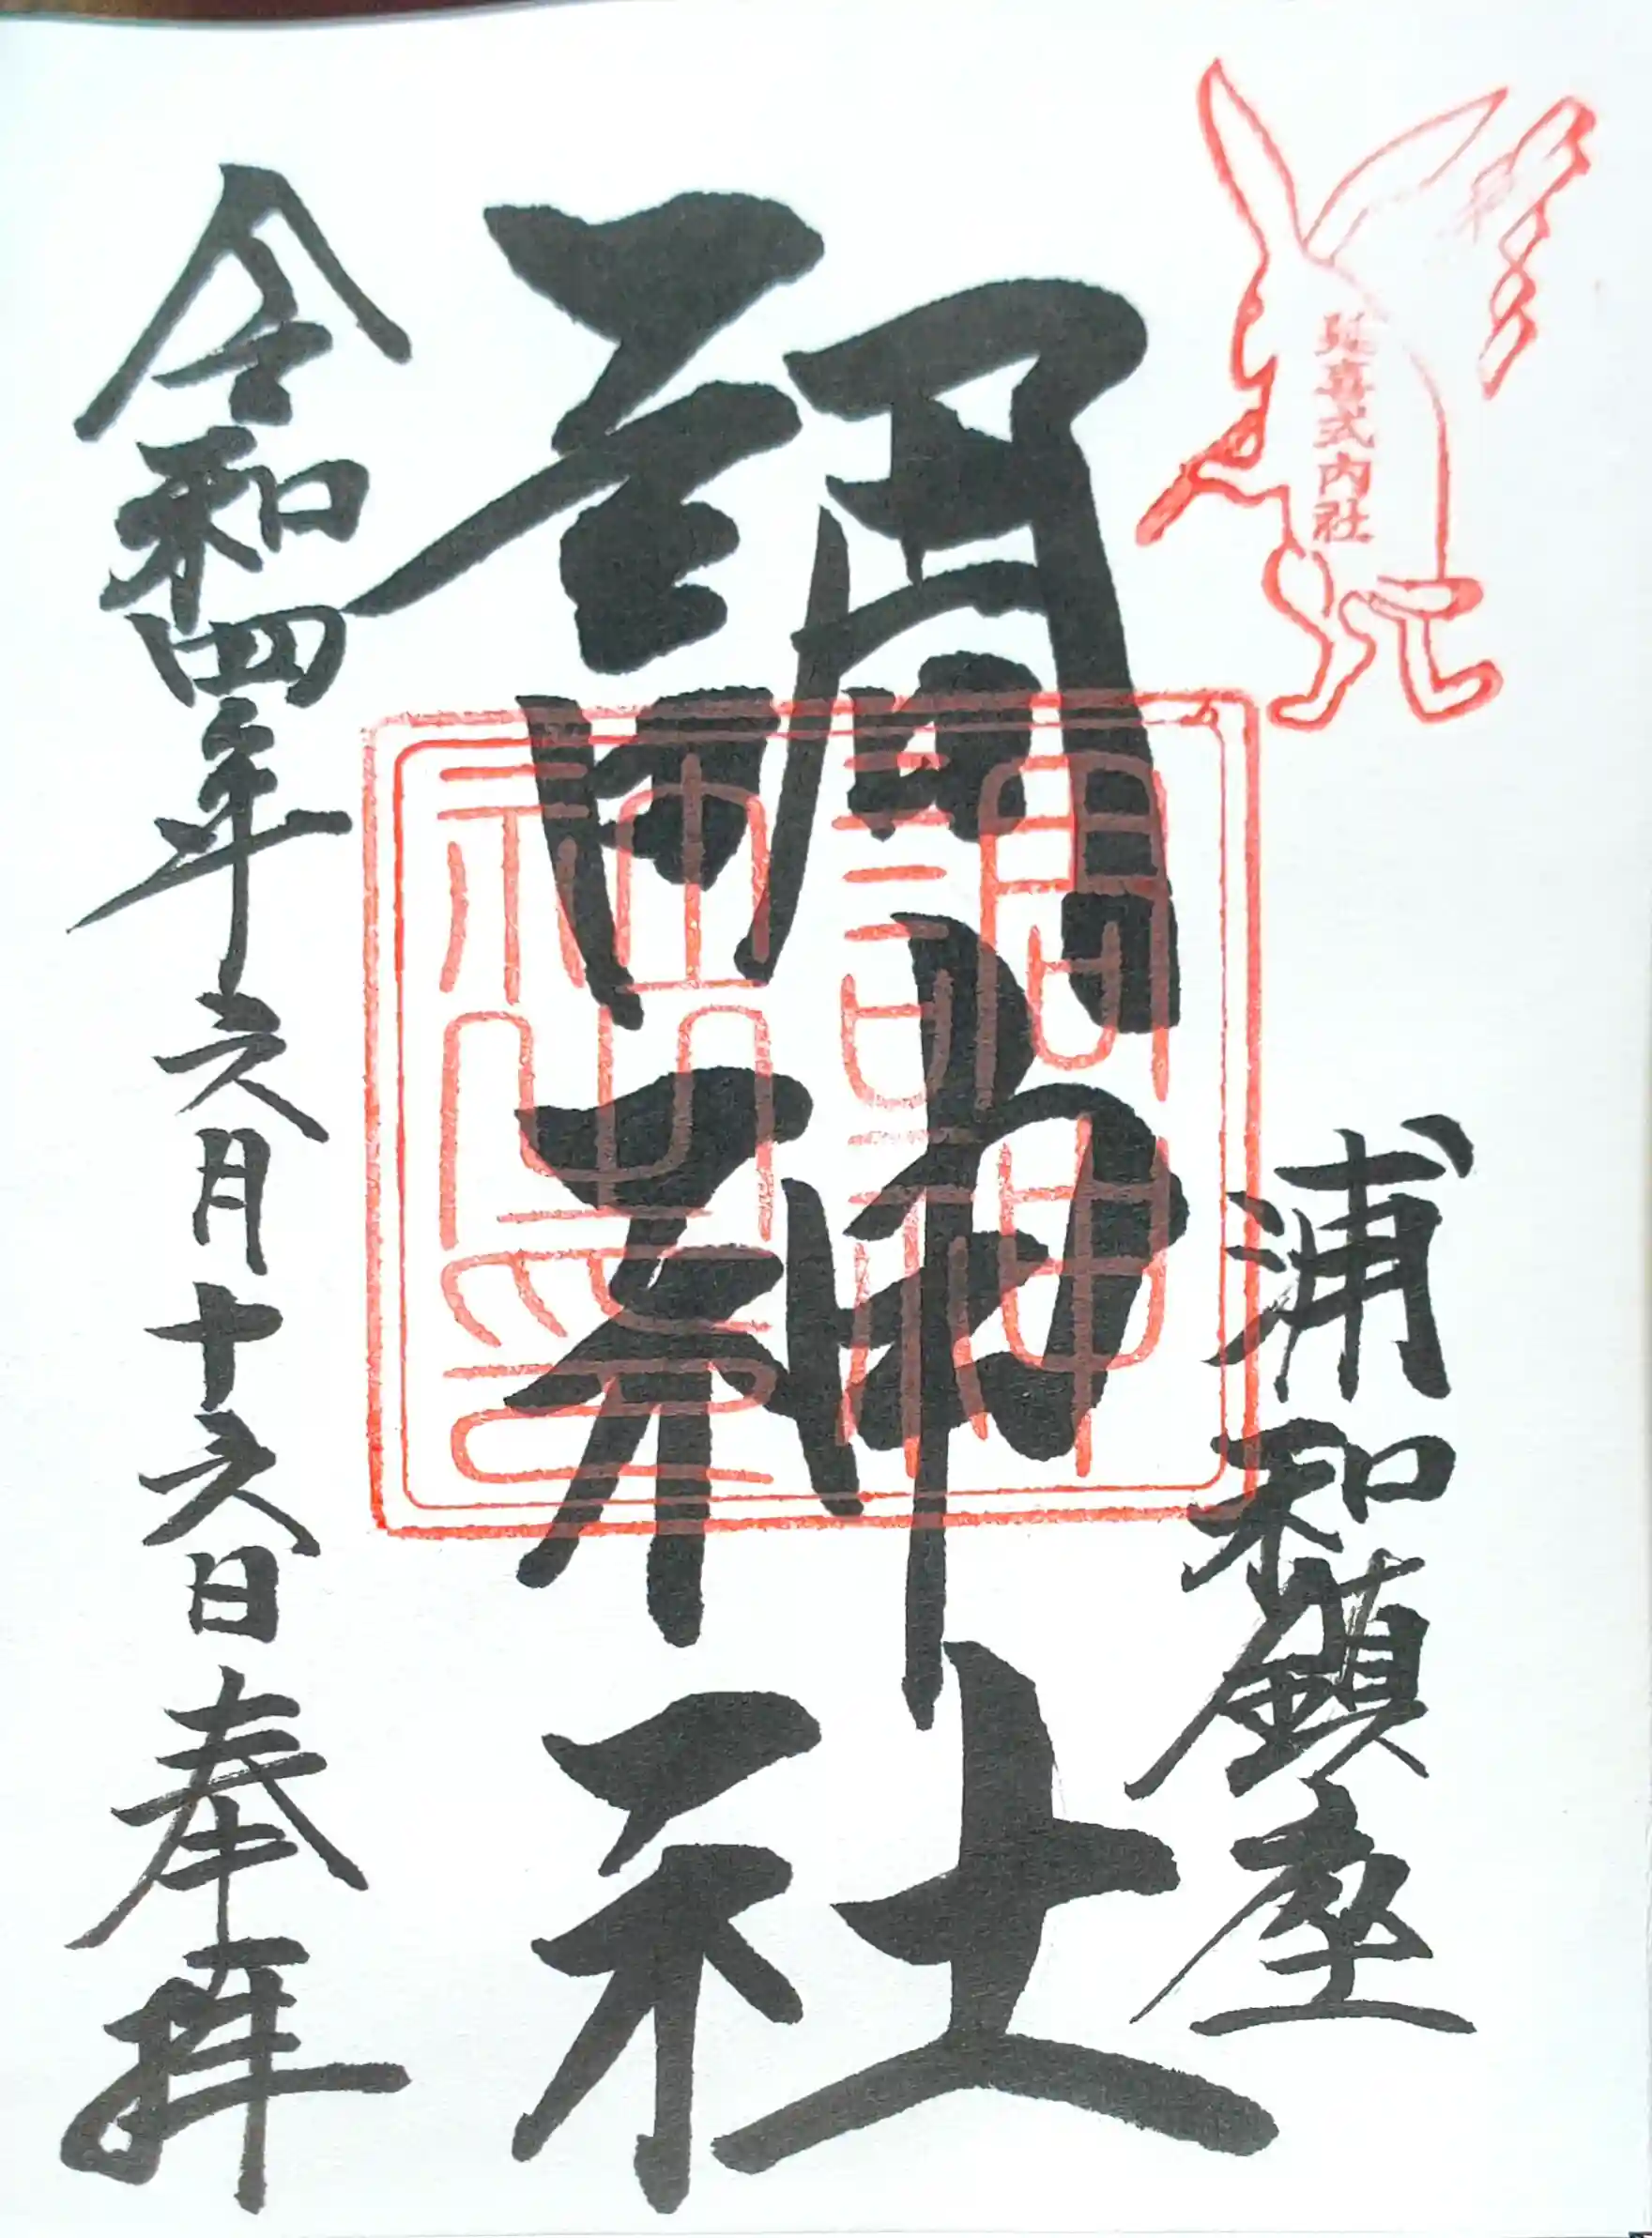 延喜式内社
浦和鎮座
調神社
調神社之印
令和四年六月十六日奉拝